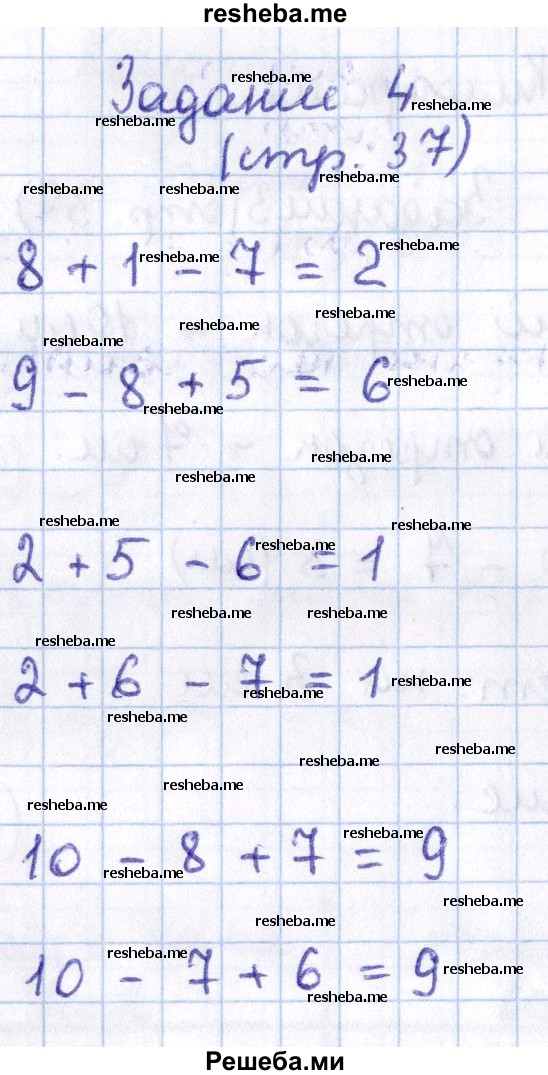 resheba.me
Задание 4
(стр. 37)
8 + 1 - 7 = 2
9 - 8 + 5 = 6
2 + 5 - 6 = 1
2 + 6 - 7 = 1
10 - 8 + 7 = 9
10 - 7 + 6 = 9
Решеба.ми